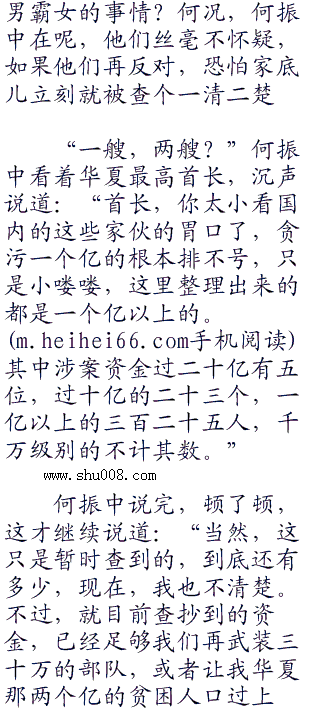 男霸女的事情？何况，何振
中在呢，他们丝毫不怀疑，
如果他们再反对，恐怕家底
儿立刻就被查个一清二楚
“一艘，两艘？”何振
中看着华夏最高首长，沉声
说道：“首长，你太小看国
内的这些家伙的胃口了，贪
污一个亿的根本排不号，只
是小喽喽，这里整理出来的
都是一个亿以上的。
(m.heihei66.com手机阅读)
其中涉案资金过二十亿有五
位，过十亿的二十三个，一
亿以上的三百二十五人，千
万级别的不计其数。”
www.shu008.com
何振中说完，顿了顿，
这才继续说道：“当然，这
只是暂时查到的，到底还有
多少，现在，我也不清楚。
不过，就目前查抄到的资
金，已经足够我们再武装三
十万的部队，或者让我华夏
那两个亿的贫困人口过上